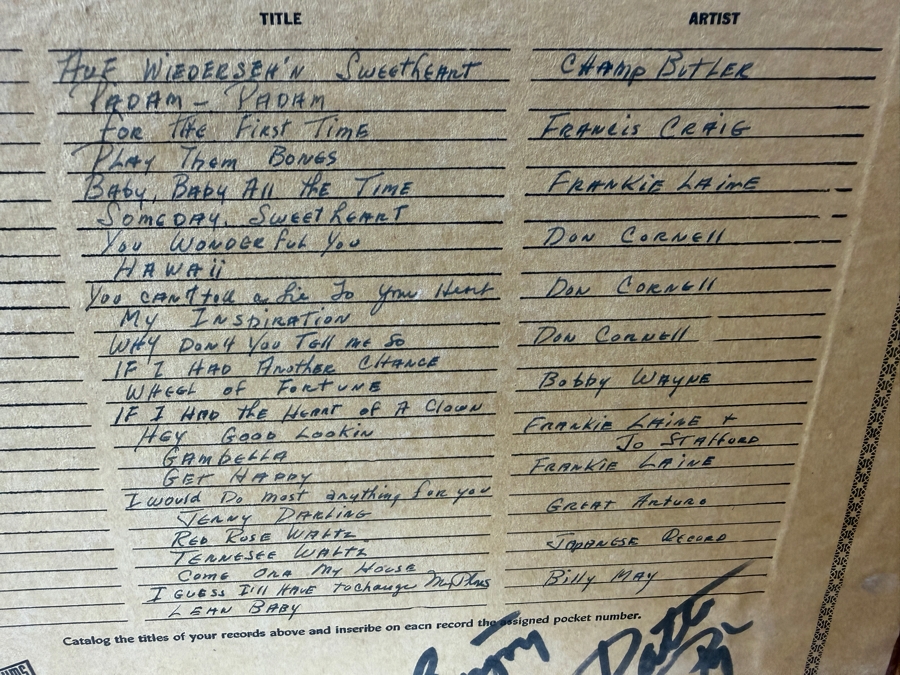 TITLE ARTIST
AUF WIEDERSEH'N SweetheArt CHAmp BUTLER
PADAM - PADAM
for The First Time FRANCIS CRAIG
PLAY Them BONES
BAby, BAby All the TIME FRANKIE LAINE
SOMEDAY, SWEETHEART
You WONDERful You DON CORNEll
HAWAii
You can't tell a Lie To Your Heart DON CORNEll
My INSPIRATION
WHY DON't You Tell me So DON CORNEll
IF I HAD ANOTHER CHANCE
WHEEL of FORTUNE Bobby WAYNE
IF I HAD the HEART of A Clown
HEY GOOD LOOKIN FRANKIE LAINE +
Jo STAFFORD
GAMBELLA
GET HAPPY FRANKIE LAINE
I would Do most anything for you
JENNY DARLING GREAT ARTURO
RED ROSE WALTZ
TENNESEE WALTZ JAPANESE RECORD
COME ONA MY HOUSE
I GUESS I'll HAVE to change My Plans Billy MAY
LEAN BABY
Catalog the titles of your records above and inscribe on each record the assigned pocket number.